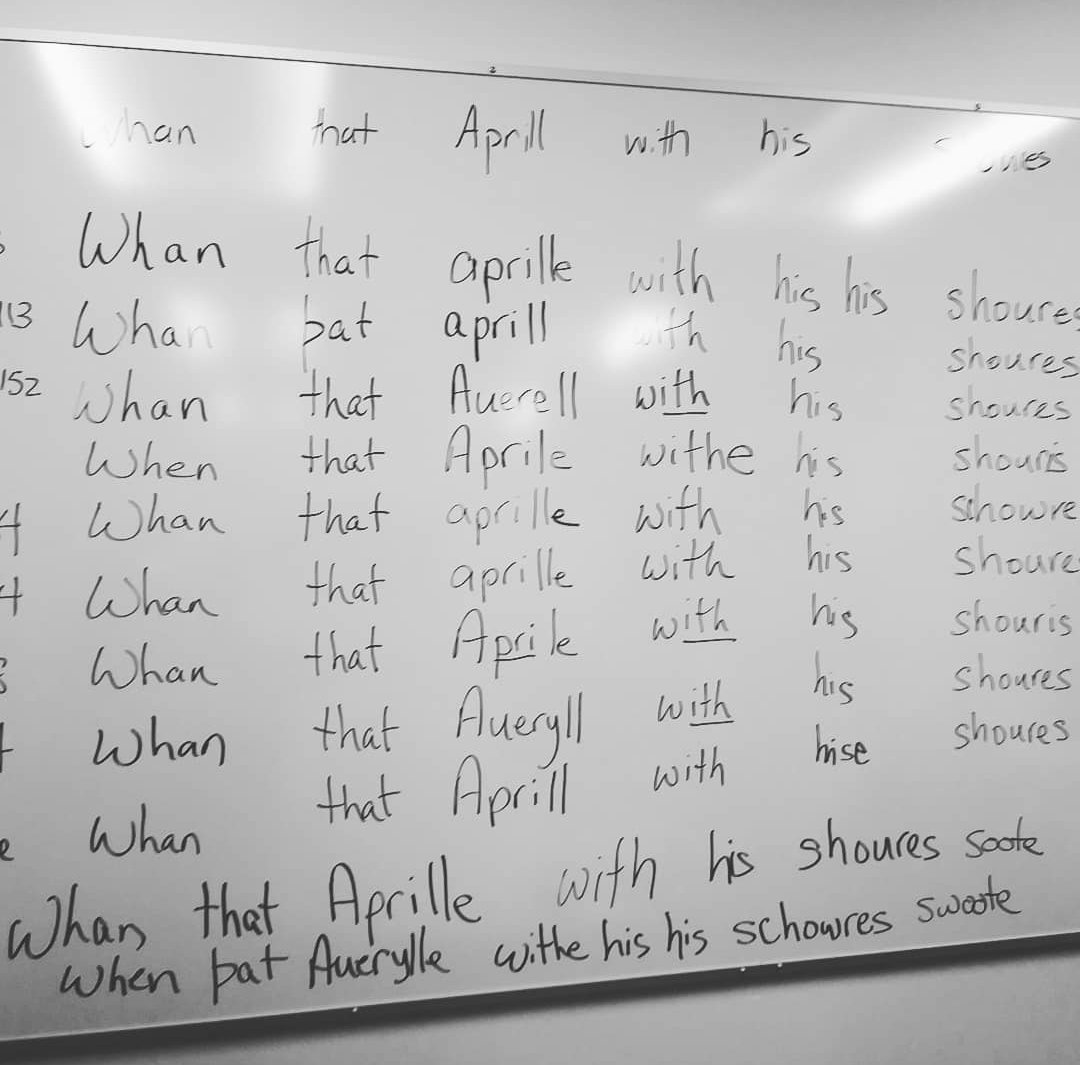 Whan that Aprill with his
Whan that aprille with his his shoures
113 Whan þat aprill with his shoures
152 Whan that Auerell with his shoures
When that Aprile withe his shouris
4 Whan that aprille with his schowre
4 Whan that aprille with his shoure
Whan that Aprile with his shouris
Whan that Aueryll with his shoures
Whan that Aprill with hise shoures
Whan that Aprille with his shoures soote
When þat Auerylle withe his his schowres swoote